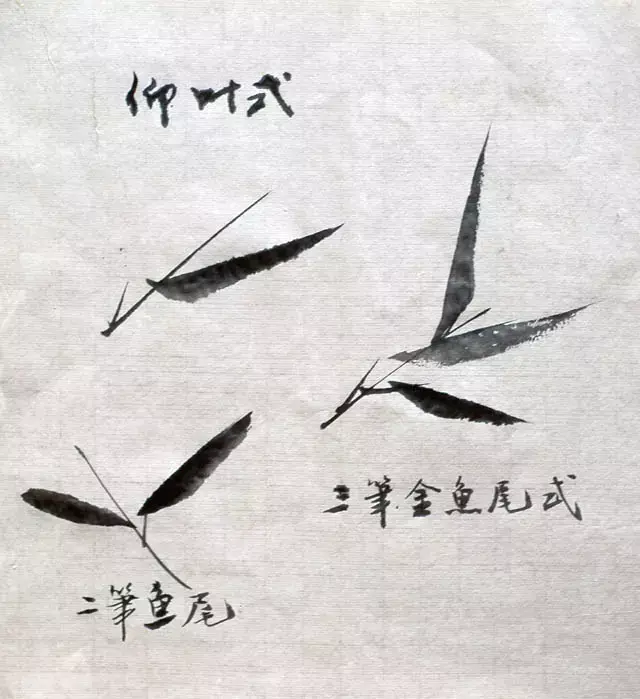 仰叶式
三筆金魚尾式
二筆魚尾